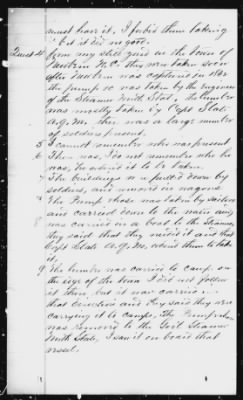 must hear it, I forbid them taking
it but it did no good.
Quest 4 From my still yard in the town of
Newbern N.C. they were taken soon
after Newbern was captured in 1862
the pump was taken by the engineer
of the Steamer North State, the lumber
was mostly taken by Capt Slate
A.Q.M. there was a large number
of soldiers present.
5 I cannot remember who was present
6 There was, I do not remember who he
was, he ordered it to be taken.
7 The buildings were pulled down by
soldiers, and moved in wagons
The Pump & hose was taken by sailors
and carried down to the river and
8 was carried in a boat to the Steamer,
they said that they needed it and that
Capt Slate A.Q.M. ordered them to take
it.
9 The lumber was carried to camp on
the edge of the town I did not follow
it there but it was carried in
that direction and they said they were
carrying it to camp, The Pump & hose
was removed to the Govt Steamer
North State, I saw it on board that
vessel.